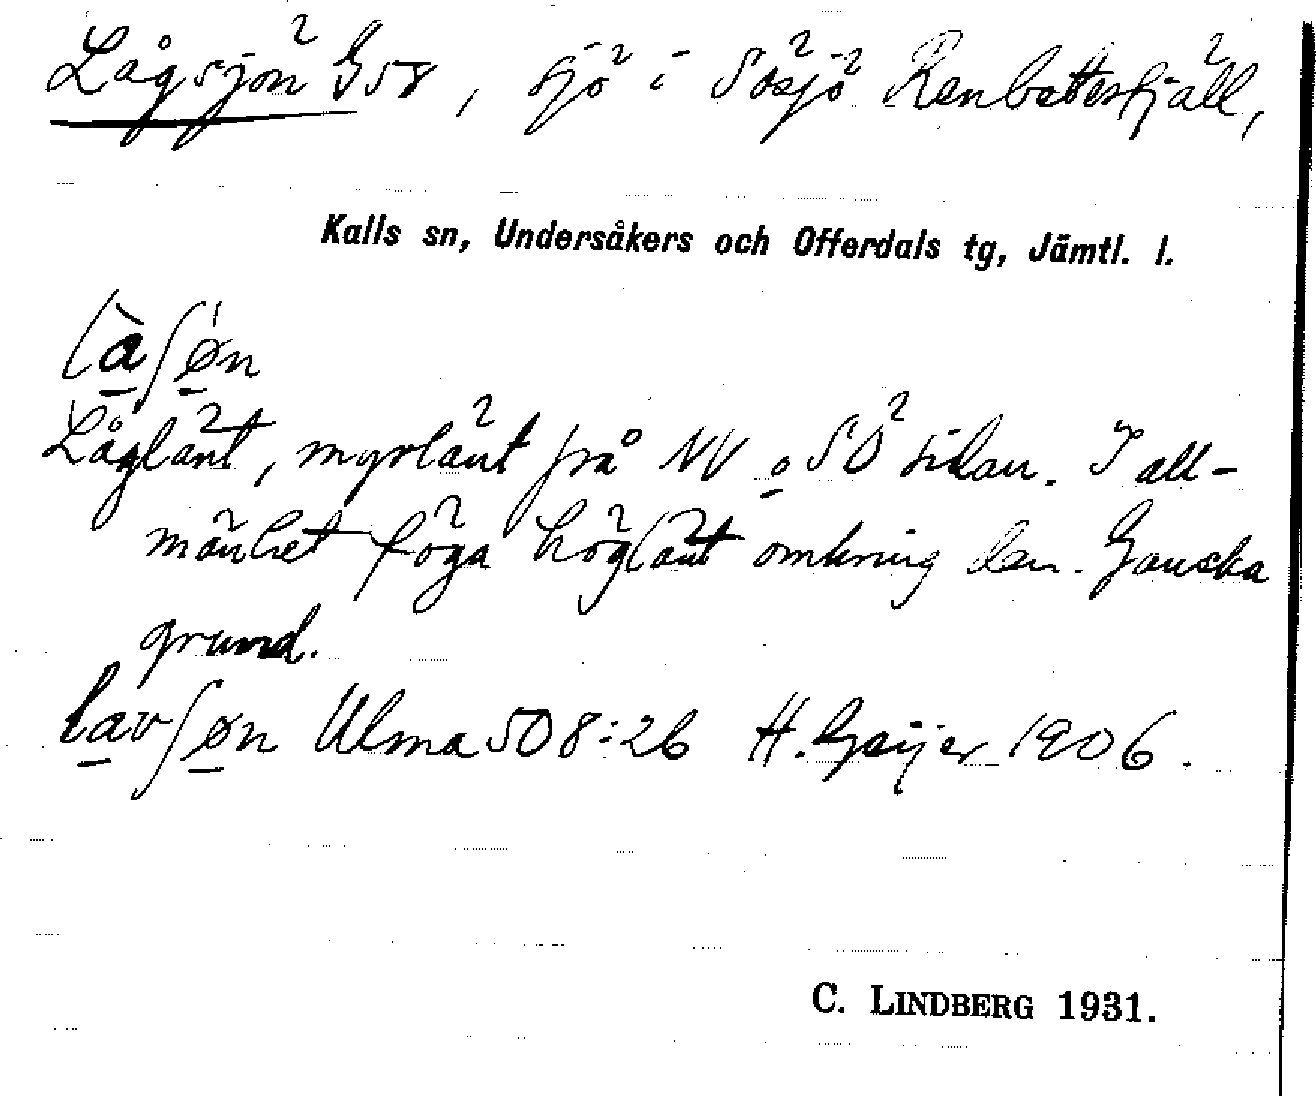 Lågsjön G58, sjö i Sösjö Renbetesfjäll,
Kalls sn, Undersåkers och Offerdals tg, Jämtl. l.
là̲ʃǿ̲n
Låglänt, myrlänt från NV o SÖ sidan. I all-
mänhet föga höglänt omkring den. Ganska
grund.
la̲vʃø̲n Ulma 508:26 H. Geijer 1906.
C. LINDBERG 1931.